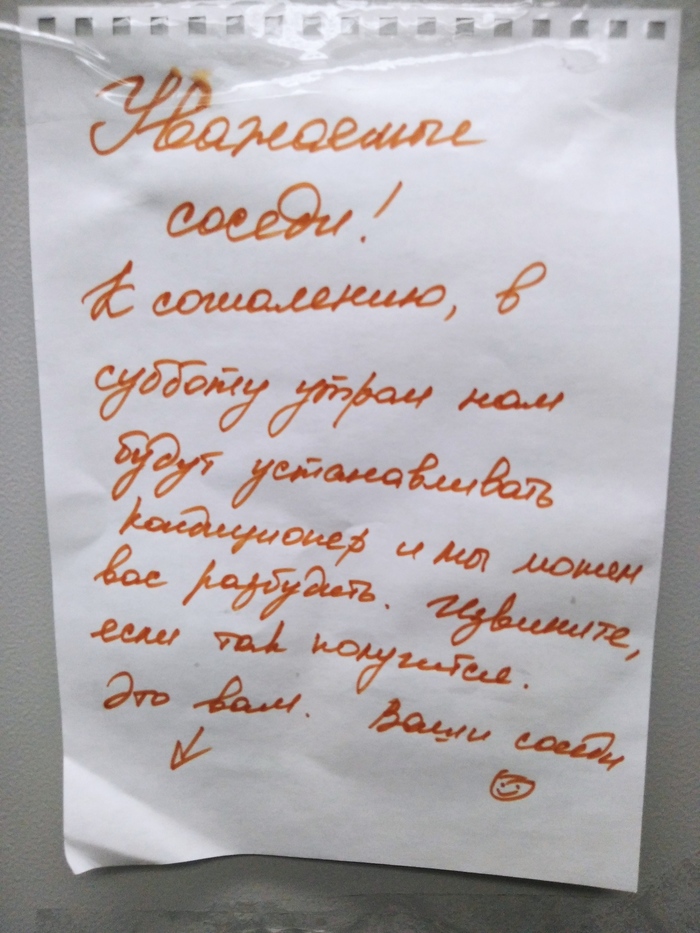 Уважаемые
соседи!
К сожалению, в
субботу утром нам
будут устанавливать
кондиционер и мы можем
вас разбудить. Извините,
если так получится.
Это вам. Ваши соседи